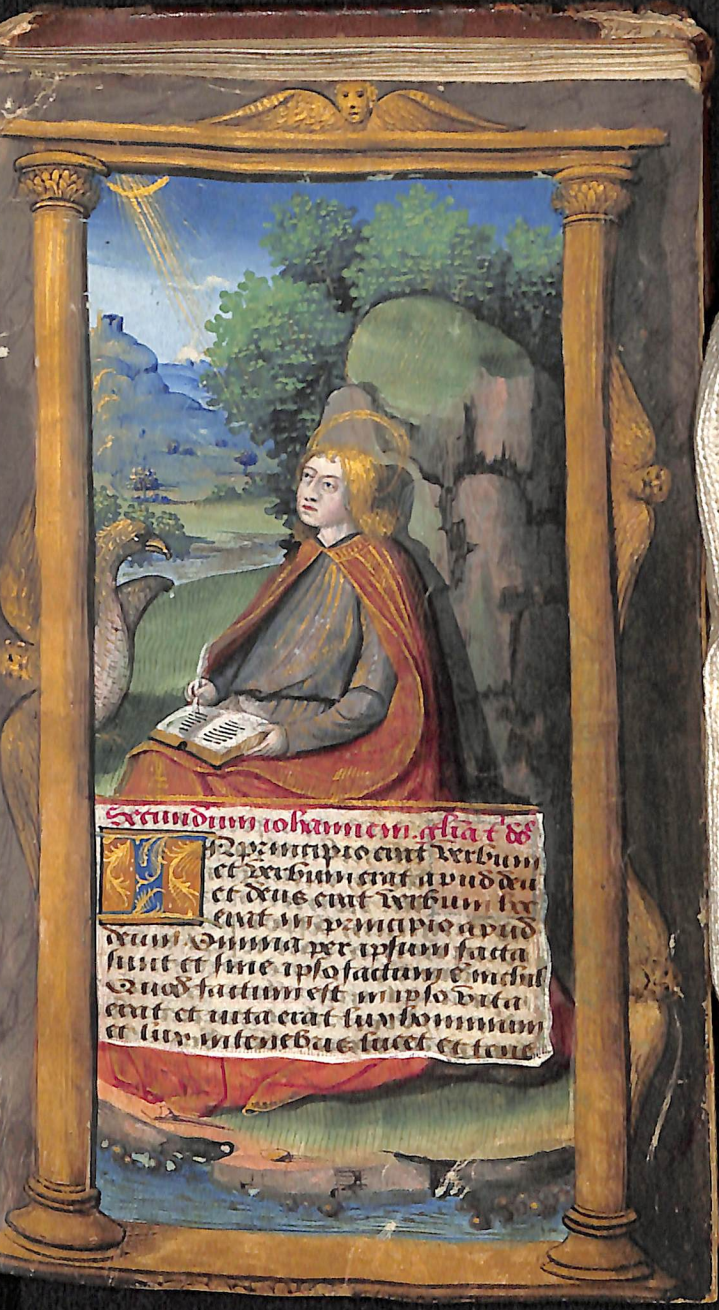 Secundum iohannem. glia t dn̄e
IN principio erat verbum
et verbum erat apud deū
et deus erat verbum hoc
erat in principio apud
deum Omnia per ipsum facta
sunt et sine ipso factum ē nichil
Quod factum est in ipso vita
erat et vita erat lux hominum
et lux in tenebris lucet et tene